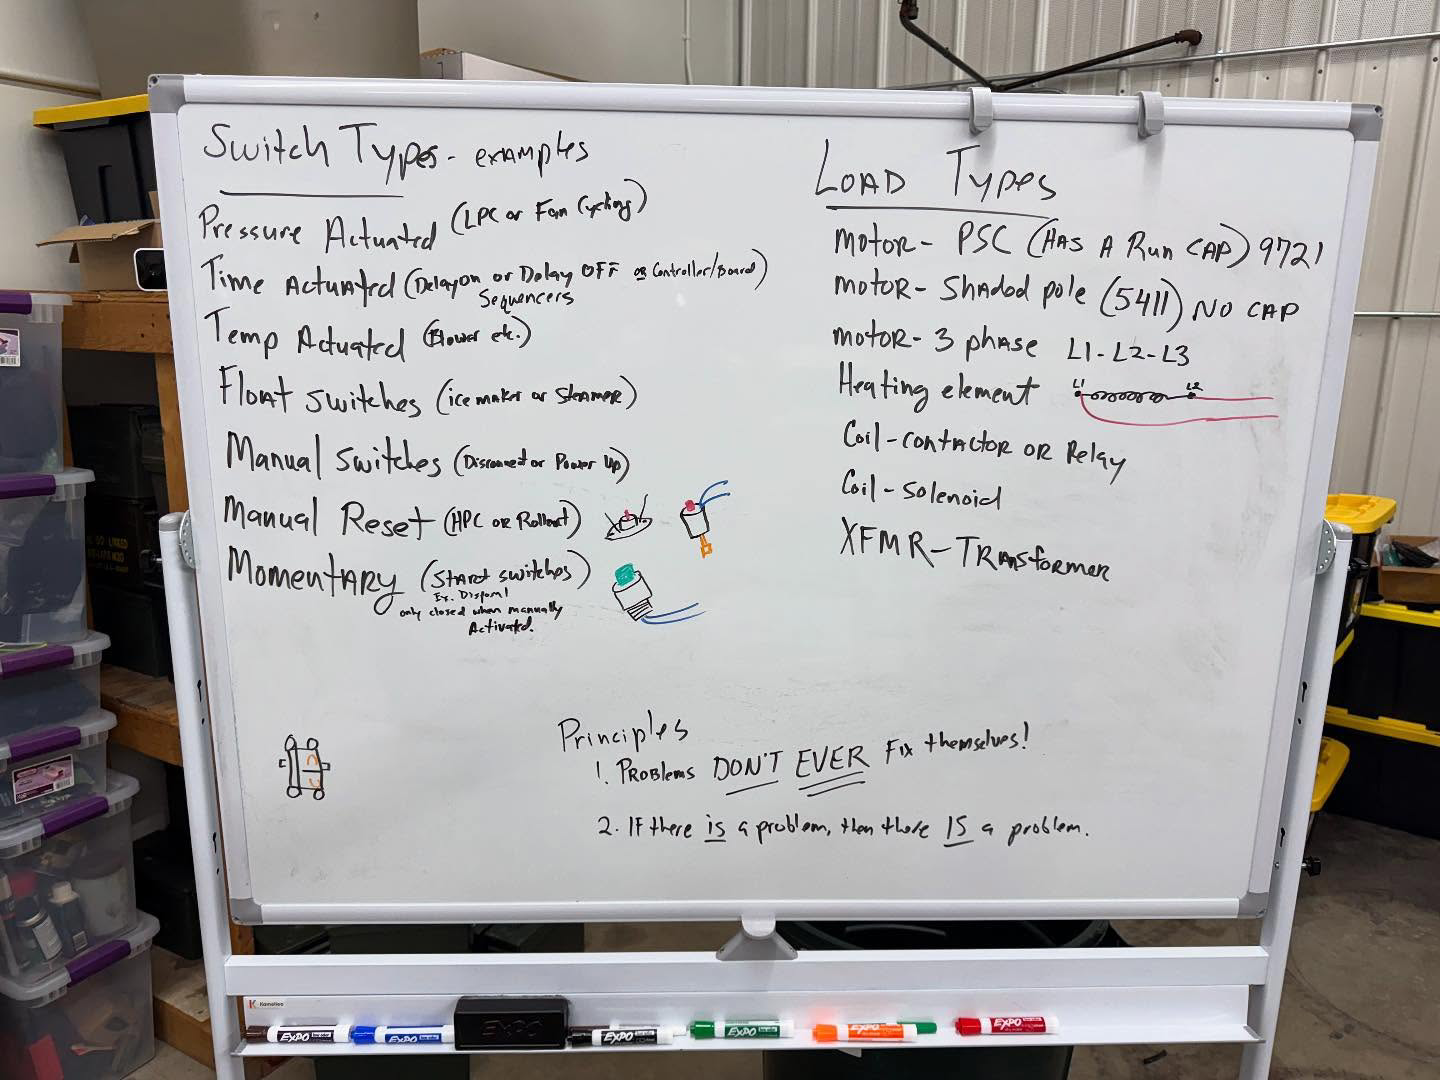 Switch Types - examples
Pressure Actuated (LPC or Fan Cycling)
Time Actuated (Delay on or Delay OFF or Controller/Board)
Sequencers
Temp Actuated (Blower etc.)
Float switches (ice maker or Steamer)
Manual switches (Disconnect or Power Up)
Manual Reset (HPC or Rollout)
Momentary (Start switches)
Ex. Disposal
only closed when manually
Activated.
LOAD Types
Motor - PSC (HAS A Run CAP) 9721
Motor - Shaded pole (5411) NO CAP
Motor - 3 phase L1-L2-L3
Heating element L1 L2
Coil - contactor OR Relay
Coil - Solenoid
XFMR - Transformer
Principles
1. Problems DON'T EVER Fix themselves!
2. IF there is a problem, then there IS a problem.
Kamelleo
EXPO EXPO EXPO EXPO EXPO EXPO EXPO